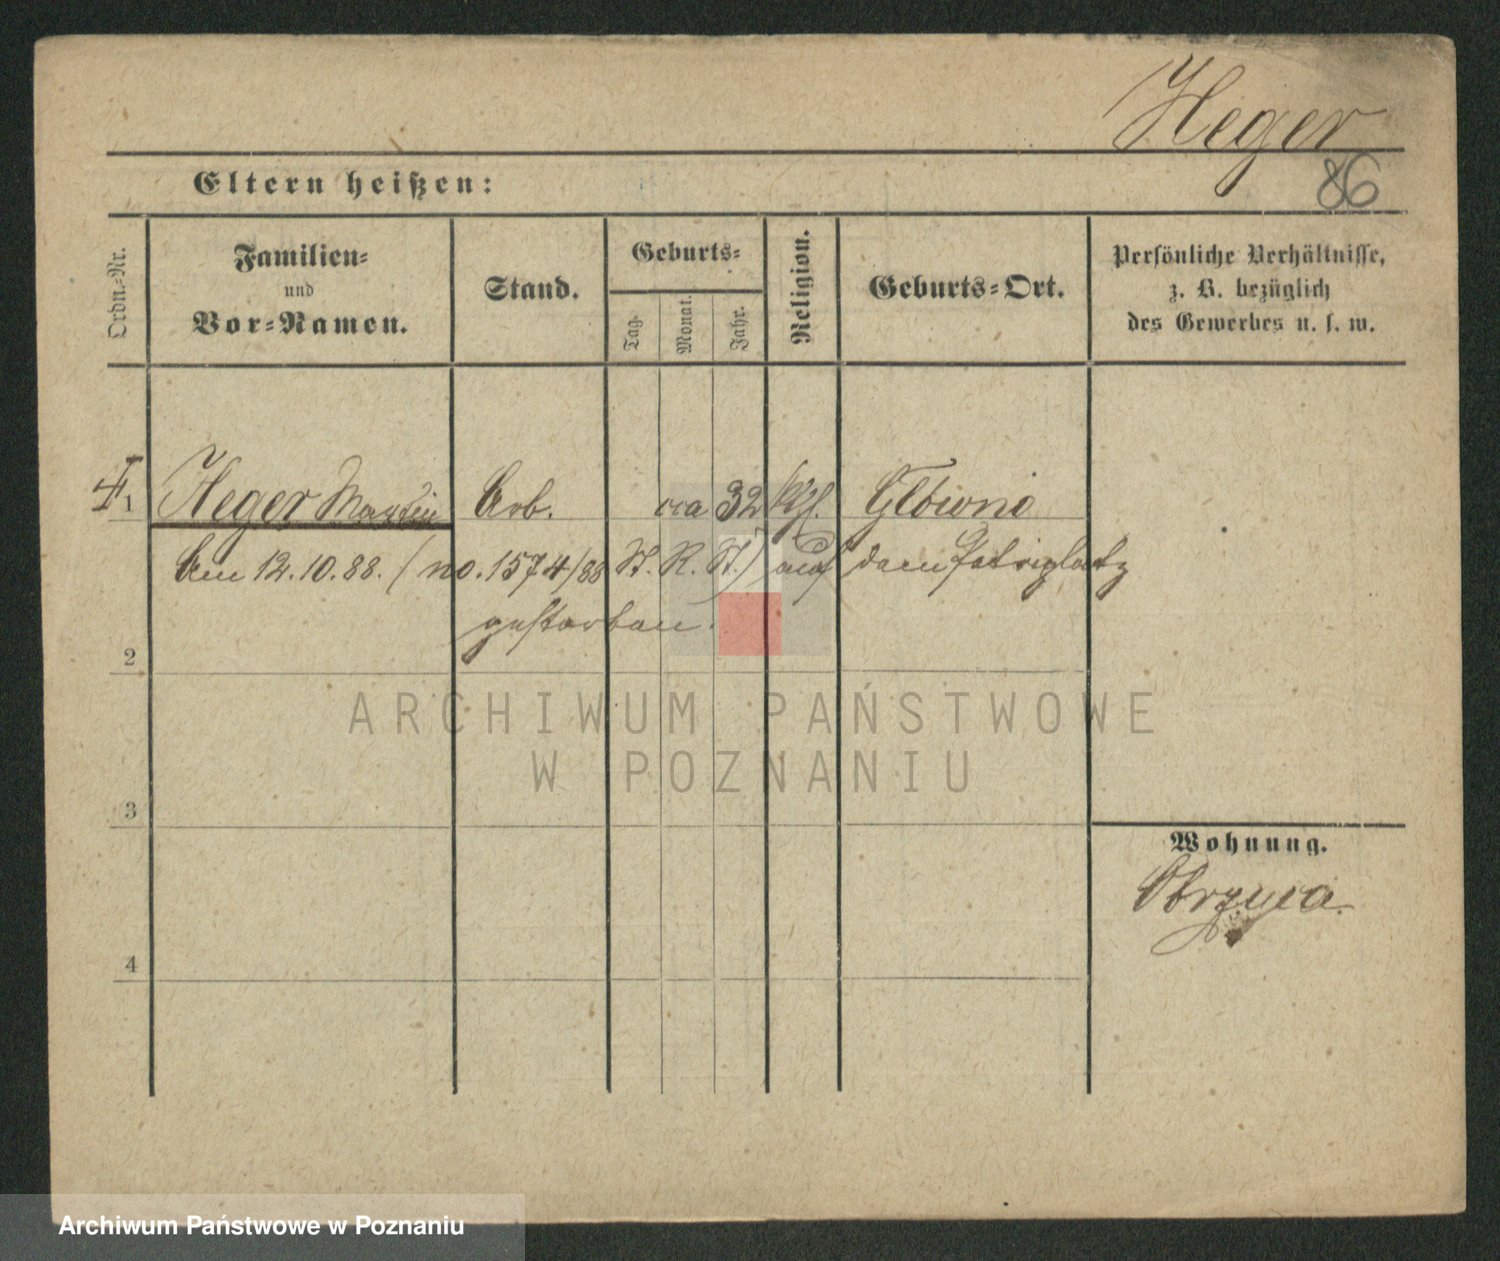 Heger
86
Eltern heißen:
Ordn.-Nr.
Familien-
und
Vor-Namen.
Stand.
Geburts-
Tag.
Monat.
Jahr.
Religion.
Geburts-Ort.
Persönliche Verhältnisse,
z. B. bezüglich
des Gewerbes u. s. w.
1 Heger Martin Arb. cca 32 kth. Główno
Am 12.10.88. (no. 1574/88 St. R. II.) auf dem Petriplatz
gestorben.
2
3
4
Wohnung.
Obrzyca
ARCHIWUM PAŃSTWOWE
W POZNANIU
Archiwum Państwowe w Poznaniu